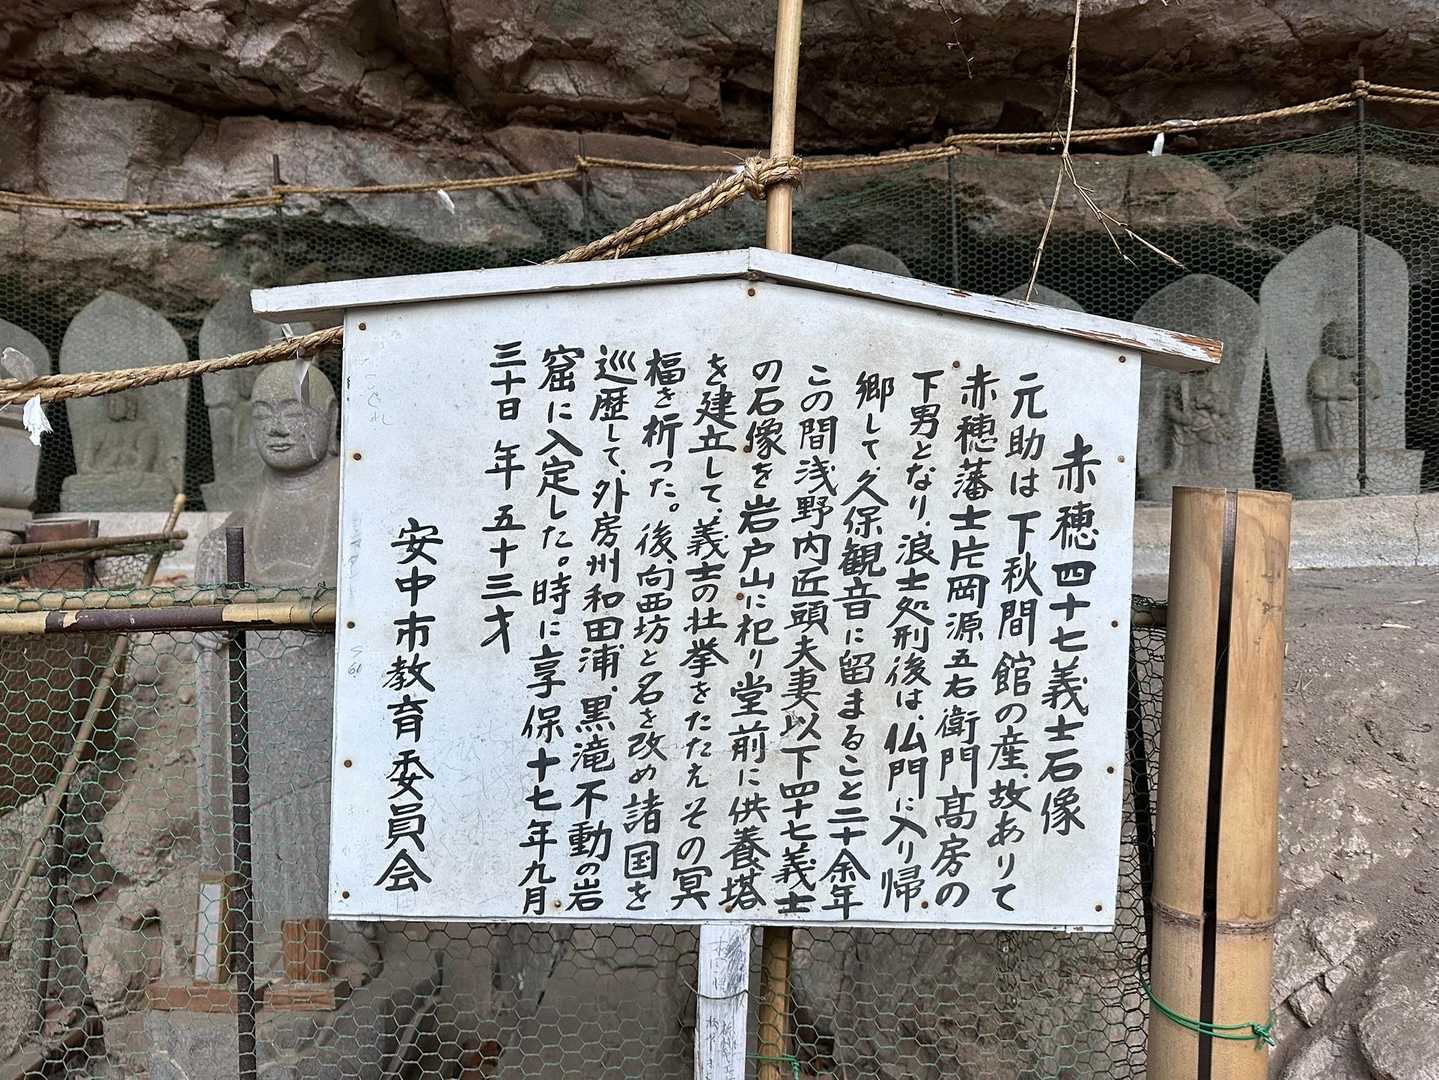 赤穂四十七義士石像
元助は下秋間館の産、故ありて
赤穂藩士片岡源五右衛門高房の
下男となり、浪士処刑後は、仏門に入り帰
郷して、久保観音に留まること二十余年
この間浅野内匠頭夫妻以下四十七義士
の石像を岩戸山に祀り堂前に供養塔
を建立して、義士の壮挙をたたえその冥
福を祈った。後、向西坊と名を改め諸国を
巡歴して、外房州和田浦、黒滝不動の岩
窟に入定した。時に享保十七年九月
三十日 年 五十三才
安中市教育委員会